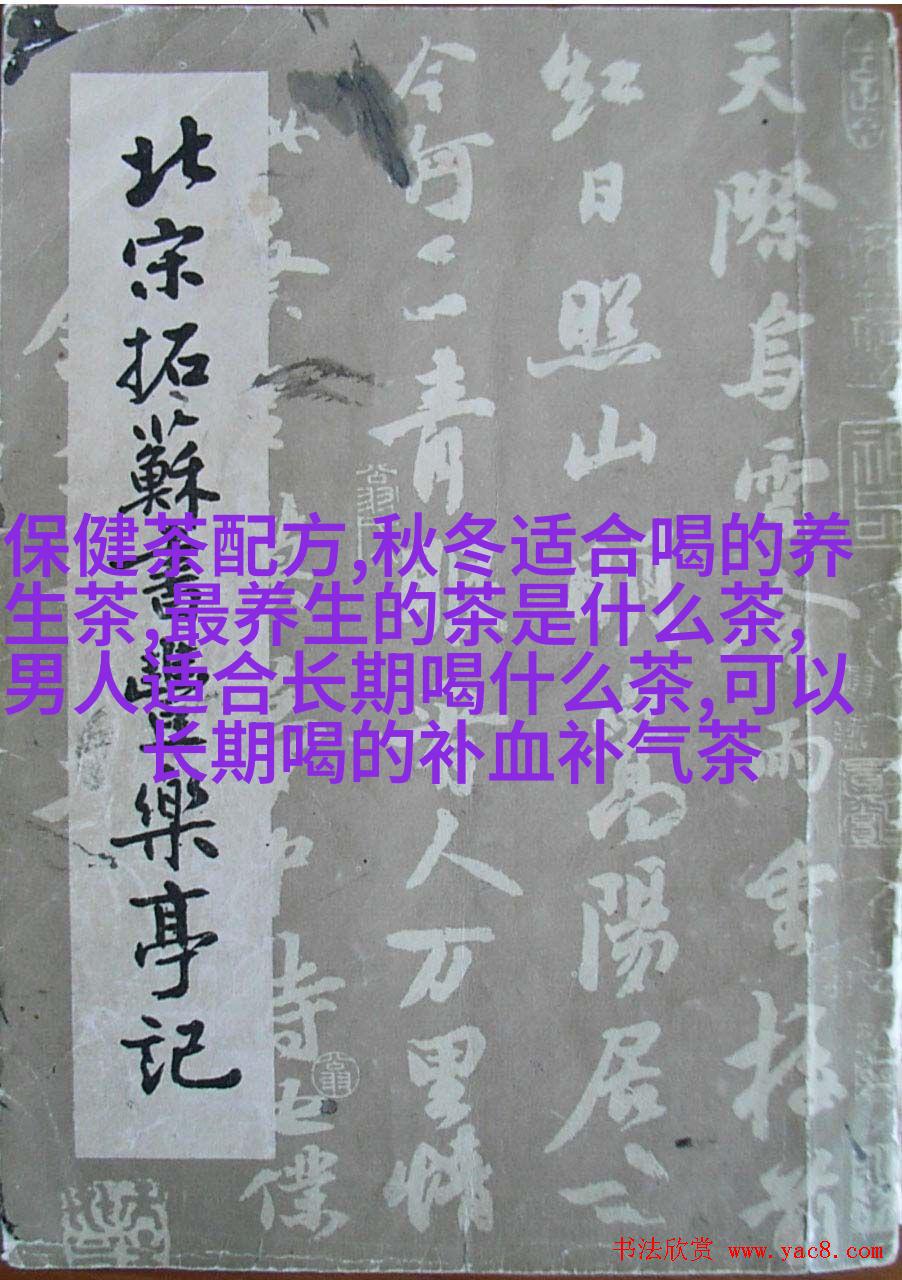 保健茶配方,秋冬适合喝的养
生茶,最养生的茶是什么茶,
男人适合长期喝什么茶,可以
长期喝的补血补气茶
天際烏雲含雨重樓前
紅日照山明嵩陽居士
今何在青眼看人万里情
此蔡 夢中詩也僕
北宋拓蘇書豐樂亭記
书法欣赏 www.yac8.com